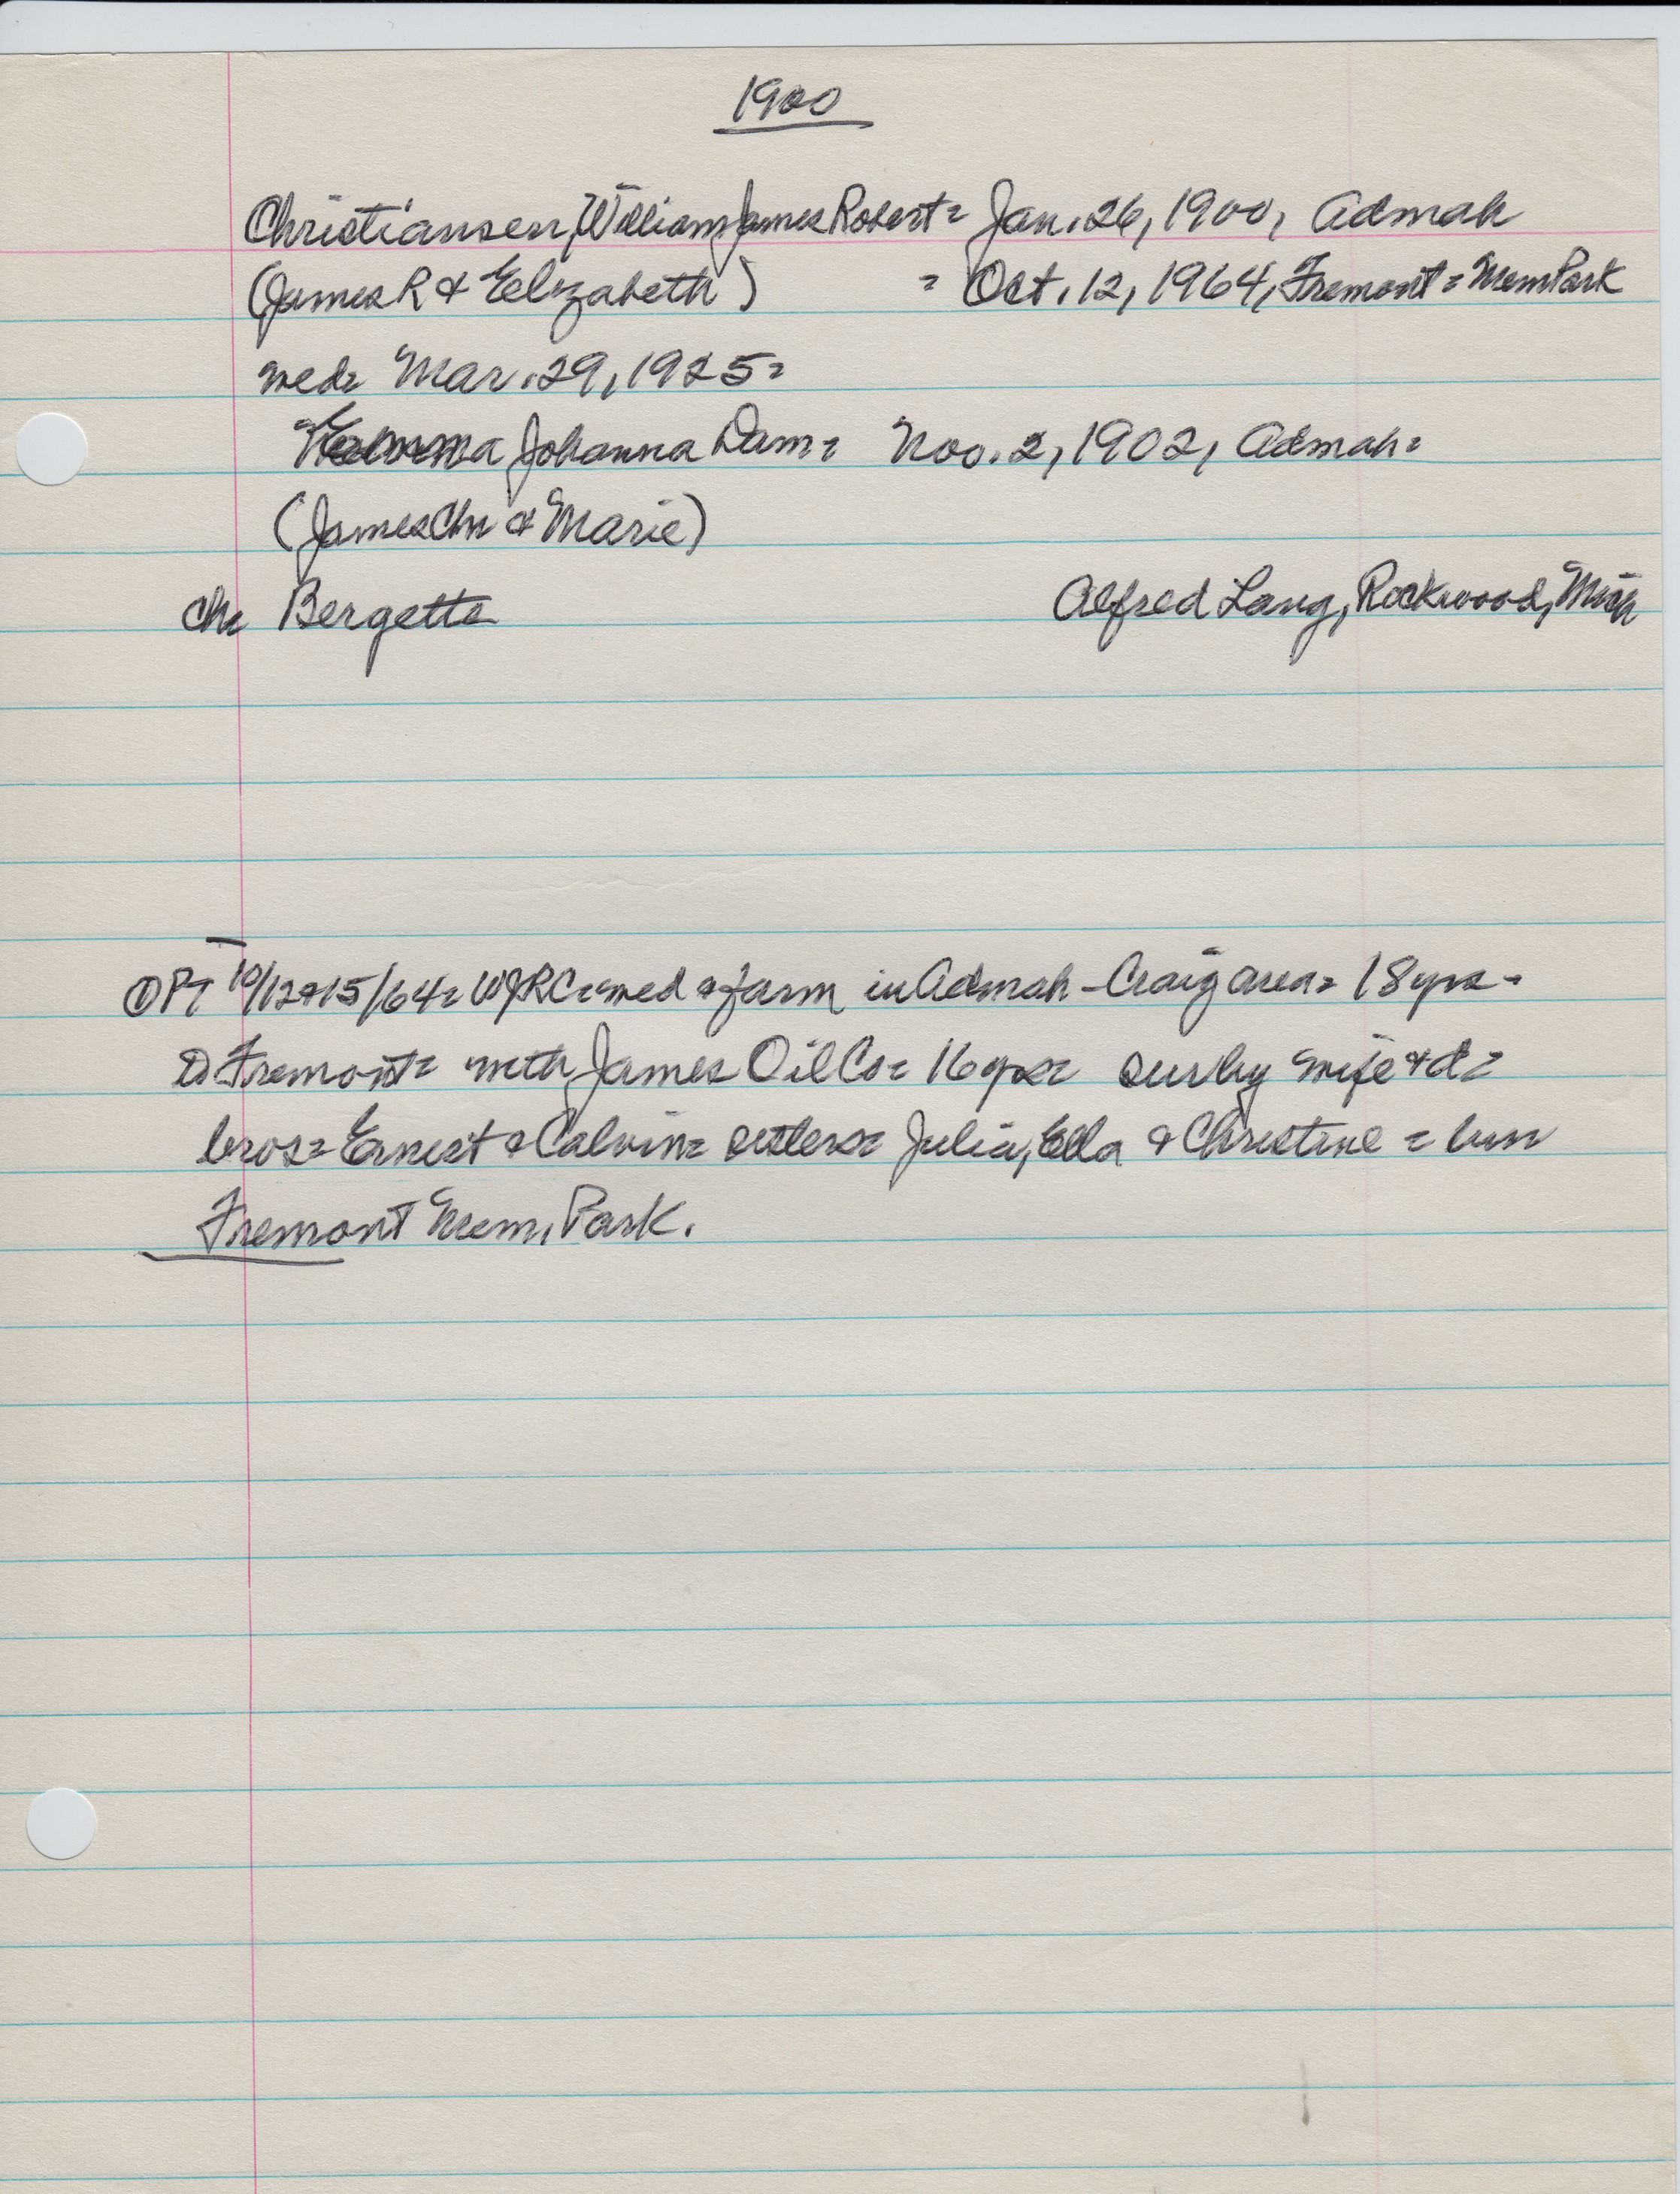 1900
Christiansen, William James Robert = Jan. 26, 1900, Admah
(James R & Elizabeth) = Oct. 12, 1964, Fremont = Mem Park
wed = Mar. 29, 1925 =
Johanna Dam = Nov. 2, 1902, Admah =
(James Chr & Marie)
ch = Bergette Alfred Lang, Rockwood, Mich
10/12+15/64 = WJRC = wed & farm in Admah - Craig area = 18 yrs -
to Fremont = with James Oil Co = 16 yrs = surby wife & d =
bros = Ernest & Calvin = sisters = Julia, Ella & Christine = bur
Fremont Mem. Park.